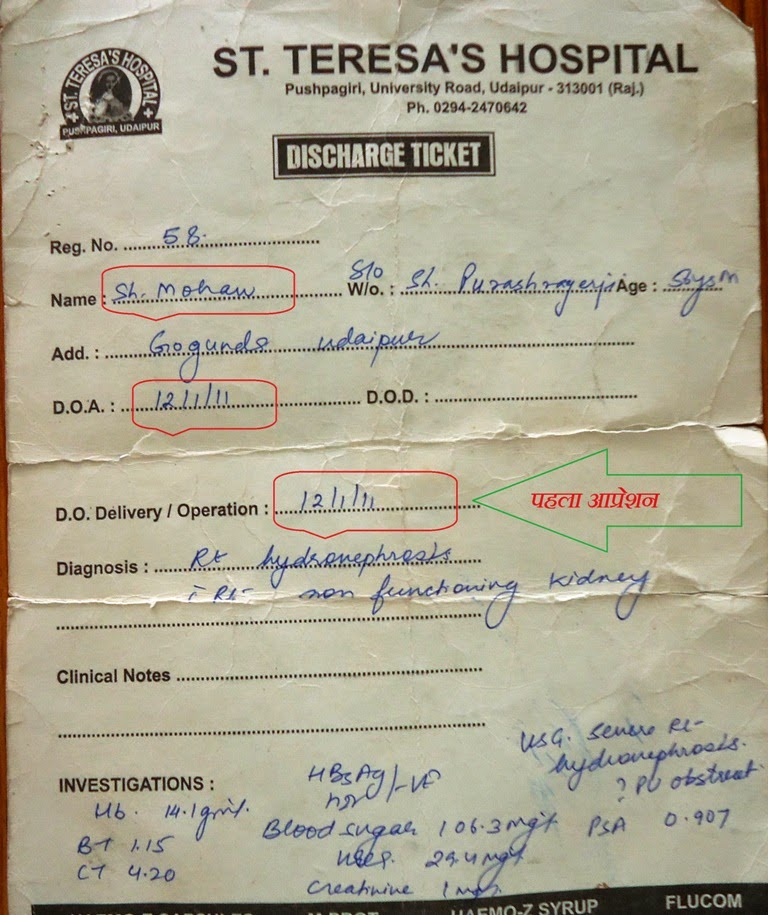 ST. TERESA'S HOSPITAL
PUSHPAGIRI, UDAIPUR
ST. TERESA'S HOSPITAL
Pushpagiri, University Road, Udaipur - 313001 (Raj.)
Ph. 0294-2470642
DISCHARGE TICKET
Reg. No. 58.
Name : Sh. Mohan S/o W/o. : Sh. Age :
Add. : Gogunda Udaipur
D.O.A. : 12/1/11 D.O.D. :
D.O. Delivery / Operation : 12/1/11 पहला आप्रेशन
Diagnosis : Rt hydronephrosis
Rt- non functioning kidney
Clinical Notes
USG. Severe Rt-
hydronephrosis.
? PU obstruct
INVESTIGATIONS :
HBsAg
HIV /-VE
Hb. 14.1gm%.
Blood sugar 106.3mg% PSA 0.907
BT 1.15
Urea. 29.4mg%
CT 4.20
Creatinine 1mg%.
HAEMO-Z SYRUP FLUCOM